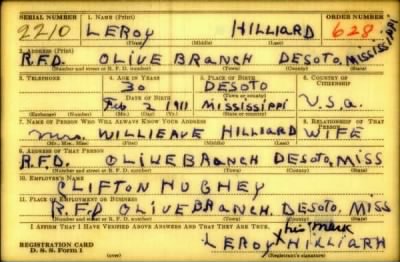 SERIAL NUMBER 1. NAME (Print) ORDER NUMBER
2210 LEROY HILLIARD 628
(First) (Middle) (Last)
2. ADDRESS (Print)
R.F.D. OLIVE BRANCH DESOTO, MISSISSIPPI
(Number and street or R. F. D. number) (Town) (County) (State)
3. TELEPHONE 4. AGE IN YEARS 5. PLACE OF BIRTH 6. COUNTRY OF CITIZENSHIP
30 DESOTO
DATE OF BIRTH (Town or county)
Feb 2 1911 MISSISSIPPI U.S.a.
(Exchange) (Number) (Mo.) (Day) (Yr.) (State or country)
7. NAME OF PERSON WHO WILL ALWAYS KNOW YOUR ADDRESS 8. RELATIONSHIP OF THAT PERSON
Mrs. WILLIEAVE HILLIARD WIFE
(Mr., Mrs., Miss) (First) (Middle) (Last)
9. ADDRESS OF THAT PERSON
R.F.D. OLIVE BRANCH DESOTO, MISS
(Number and street or R. F. D. number) (Town) (County) (State)
10. EMPLOYER'S NAME
CLIFTON HUGHEY
11. PLACE OF EMPLOYMENT OR BUSINESS
R.F.D OLIVE BRANCH, DESOTO, MISS
(Number and street or R. F. D. number) (Town) (County) (State)
I AFFIRM THAT I HAVE VERIFIED ABOVE ANSWERS AND THAT THEY ARE TRUE.
his mark
REGISTRATION CARD LEROY X HILLIARH
D. S. S. Form 1 (Registrant's signature)